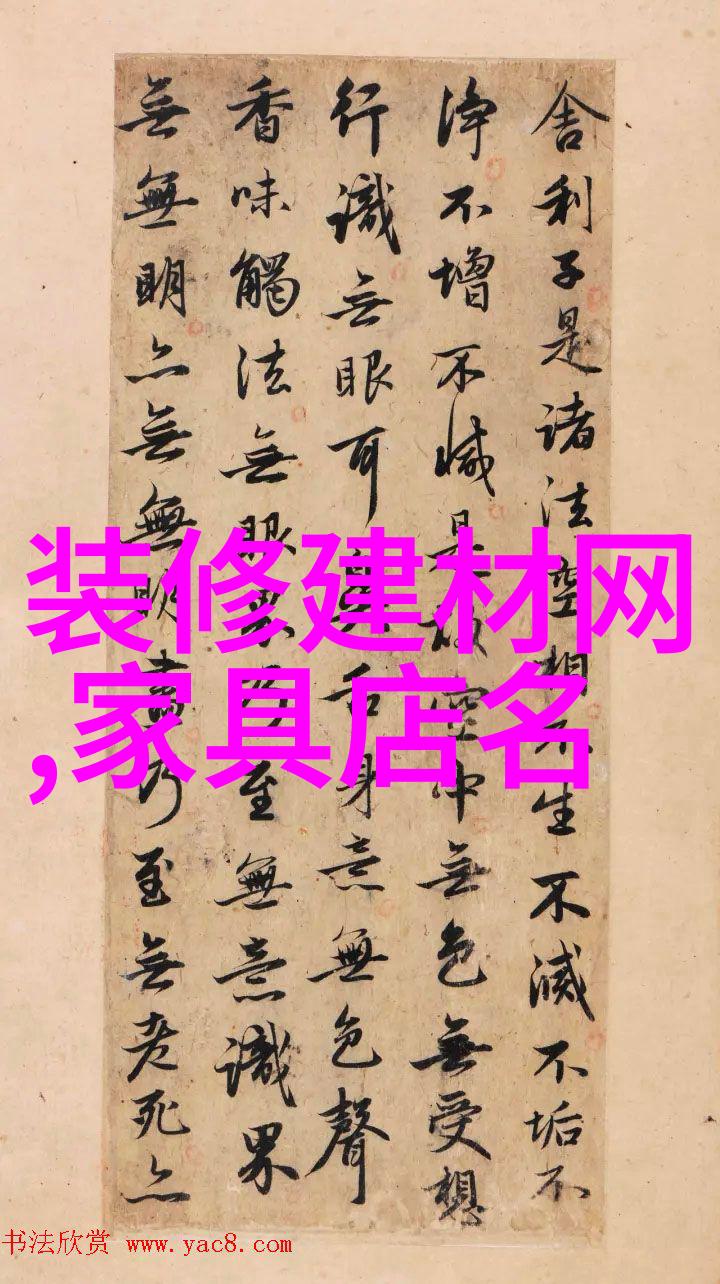 舍利子是諸法空相不生不滅不垢不
淨不增不減是故空中無色無受想
行識無眼耳鼻舌身意無色聲
香味觸法無眼界乃至無意識界
無無明亦無無明盡乃至無老死亦
装修建材网
,家具店名
书法欣赏 www.yac8.com